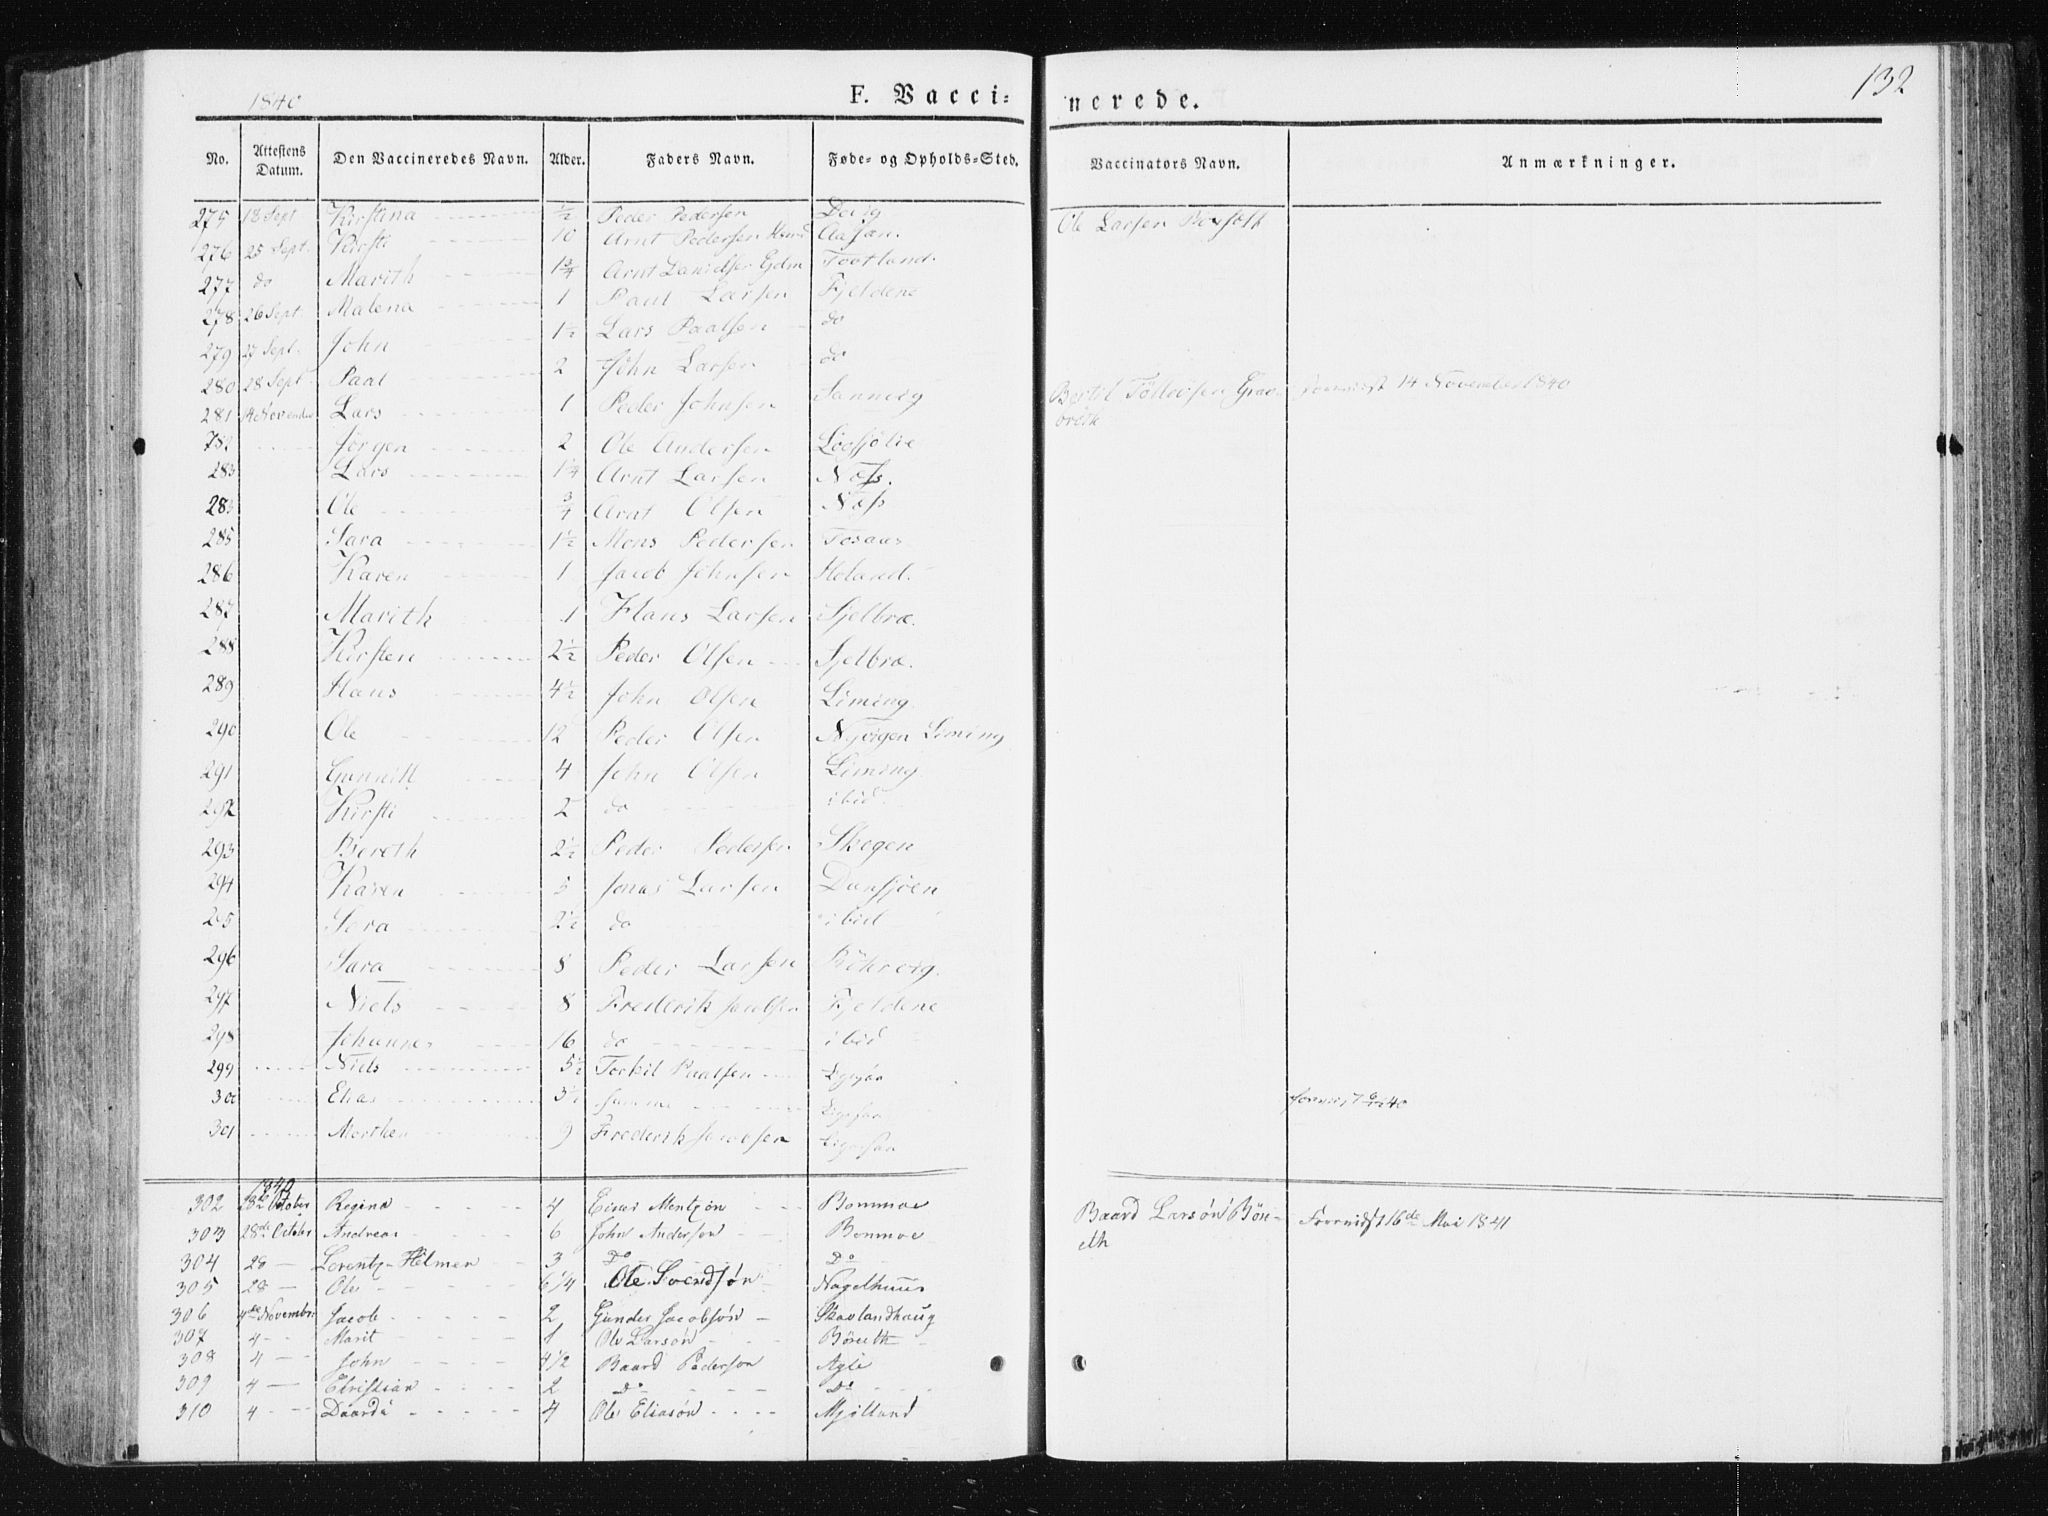 1840 F. Vacci: nerede. 132
No. Attestens Datum. Den Vaccineredes Navn. Alder. Faders Navn. Føde- og Opholds-Sted. Vaccinators Navn. Anmærkninger.
275 18 Sept Kirstina ½ Peder Pedersen Devig Ole Larsen
276 25 Sept. Kirsti 10 Arnt Pedersen Aasan.
277 do Marith 1¾ Arnt Danielsen
278 26 Sept. Malena 1 Paul Larsen Fjeldene
279 27 Sept. John 1½ Lars Paalsen do
280 28 Sept Paal 2 John Larsen do
281 14 November Lars 1 Peder Johnsen Sannvig Bertil Tollevsen 14 November 1840
752 Jørgen 2 Ole Andersen
283 Lars 1¼ Arnt Larsen Næss.
283 Ole ¾ Arnt Olsen Næss
285 Sara 1½ Mons Pedersen Tosaas
286 Karen 1 Jacob Johnsen Høland.
287 Marith 1 Hans Larsen Sjelbræ.
288 Kirsten 2½ Peder Olsen Sjelbræ.
289 Hans 4½ John Olsen Liming.
290 Ole 12 Peder Olsen Nyvigen Liming
291 Gunnill 4 John Olsen Liming
292 Kirsti 2 do ibid.
293 Bereth 2½ Peder Pedersen Skogen
294 Karen 5 Jonas Larsen
295 Sara 2½ do ibid
296 Sara 8 Peder Larsen Böhrvig.
297 Niels 8 Frederik Jacobsen Fjeldene
298 Johannes 16 do ibid
299 Niels 5½ Torkil Paalsen
300 Elias 3½ samme
301 Morthen 9 Frederik Jacobsen
1840
302 28de October Regina 4 Einer Mentzøn Bommoe Baard Larsøn Bör- Forevist 16de Mai 1841
303 28de October Andreas 6 John Anderson Bommoe eth
304 28 — Lorentz Hilmer 3 Do Do
305 28 — Ole 6 1/4 Ole Svendsøn Nagelhuus
306 4de November Jacob 2 Gunder Jacobsøn Skavlandhaug
307 4 — Marit 1 Ole Larsøn Böreth
308 4 — John 4 1/2 Baard Pederson Agle
309 4 — Christian 2 Do Do
310 4 — 4 Ole Eliasøn Mjölland